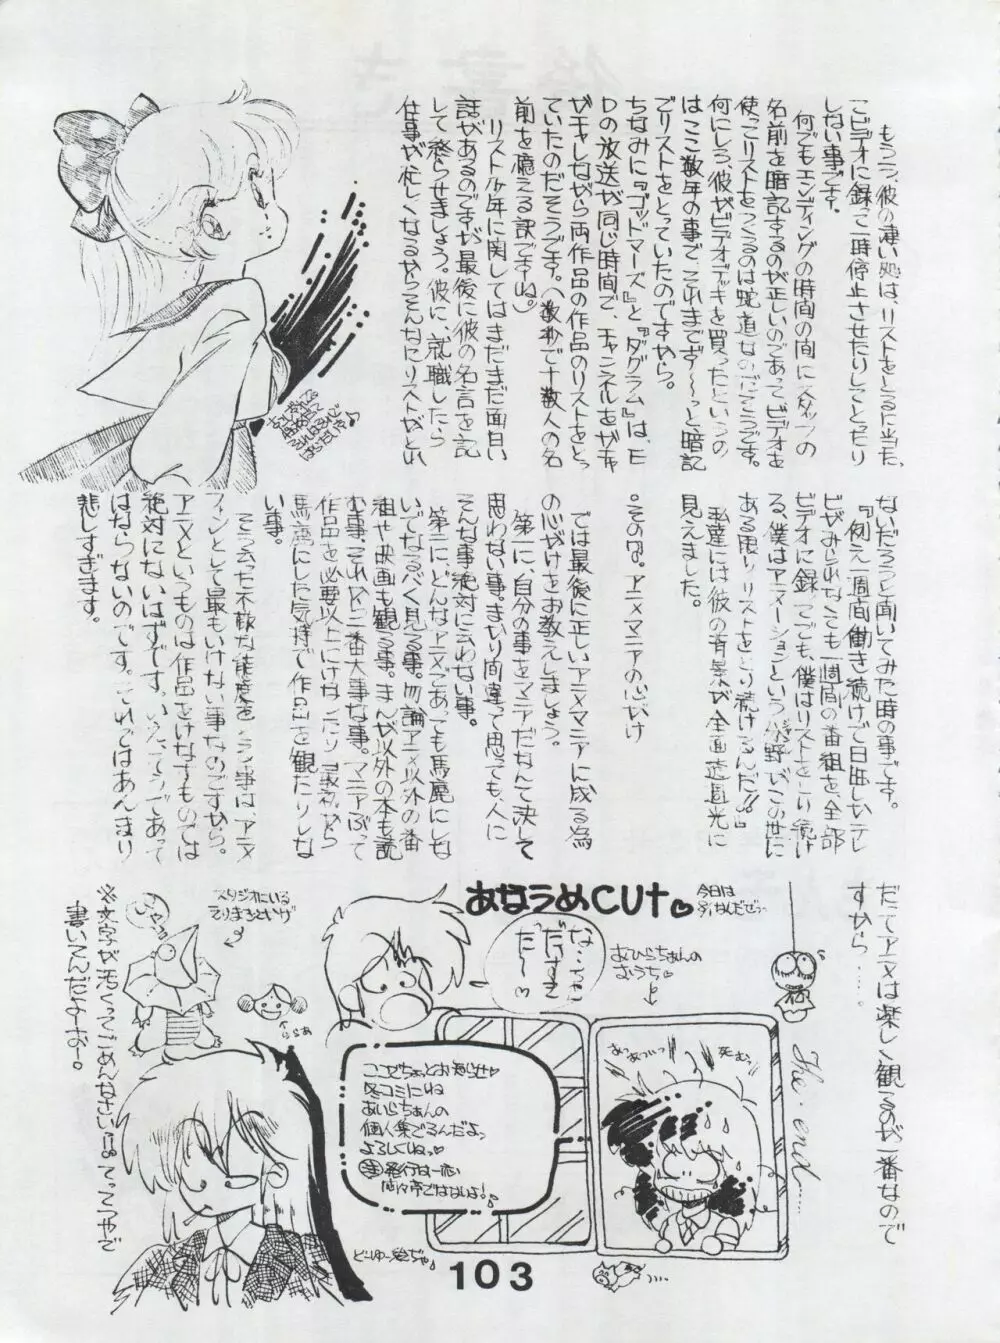 もう一つ、彼の凄い処は、リストをとるに当た、
てビデオに録って一時停止させたりしてとったり
しない事です。
何でもエンディングの時間の間にスタッフの
名前を暗記するのが正しいのであって、ビデオを
使ってリストをつくるのは邪道なのだそうです。
何にしろ、彼がビデオデッキを買ったというの
はここ数年の事で、それまでずーーっと暗記
でリストをとっていたのですから。
ちなみに『ゴッドマーズ』と『ダグラム』は、E
Dの放送が同じ時間で、チャンネルをガチャ
ガチャしながら両作品の作品のリストをとっ
ていたのだそうです。(数秒で十数人の名
前を憶える訳ですね。)
リスト少年に関してはまだまだ面白い
話があるのですが、最後に彼の名言を記
して終らせましょう。彼に、就職したら
仕事が忙しくなるからそんなにリストがとれ
ないだろうと聞いてみた時の事です。
『例え一週間働き続けで日曜しかテレ
ビがみられなくても一週間の番組を全部
ビデオに録ってでも、僕はリストをとり続け
る、僕はアニメーションという分野がこの世に
ある限りリストをとり続けるんだ!!』
私達には彼の背景が全面透過光に
見えました。
アニメマニアの心がけ
では最後に正しいアニメマニアに成る為
の心がけをお教えしましょう。
第一に、自分の事をマニアだなんて決して
思わない事。まかり間違って思っても、人に
そんな事絶対に云わない事。
第二に、どんなアニメであっても馬鹿にしな
いでなるべく見る事。勿論アニメ以外の番
組や映画も観る事。まんが以外の本も読
む事。これ一番大事な事。マニアぶって
作品を必要以上にけなしたり、最初から
馬鹿にした気持で作品を観たりしな
い事。
そう云った不敵な態度をとる事は、アニメ
ファンとして最もいけない事なのですから。
アニメというものは作品をけなすものでは
絶対にないはずです。いえ、そうであって
はならないのです。それってはあんまり
悲しすぎます。
だってアニメは楽しく観るのが一番なので
すから……。
The・end……
あなうめCUt♡
今日は
スタジオにいる
てりまろといげ
ららぁ
な…なんちゃって
だっ…
あいらちゃんの
おうち♡
あつあついっ
死むっ
ここでちょっとお知らせ♡
冬コミにね
あいらちゃんの
個人集でるんだよっ
よろしくねっ♡
㊟発行は一応
悶々亭ではないよ!♪
どーゆー絵ぢゃ♪
※文字が汚くってごめんなさい
書いてんだよーおー。
103